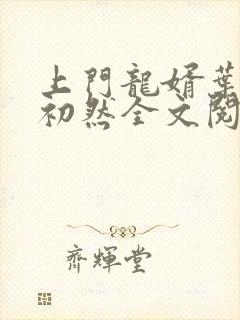 上門龍婿葉
初然全文閱
齊輝堂